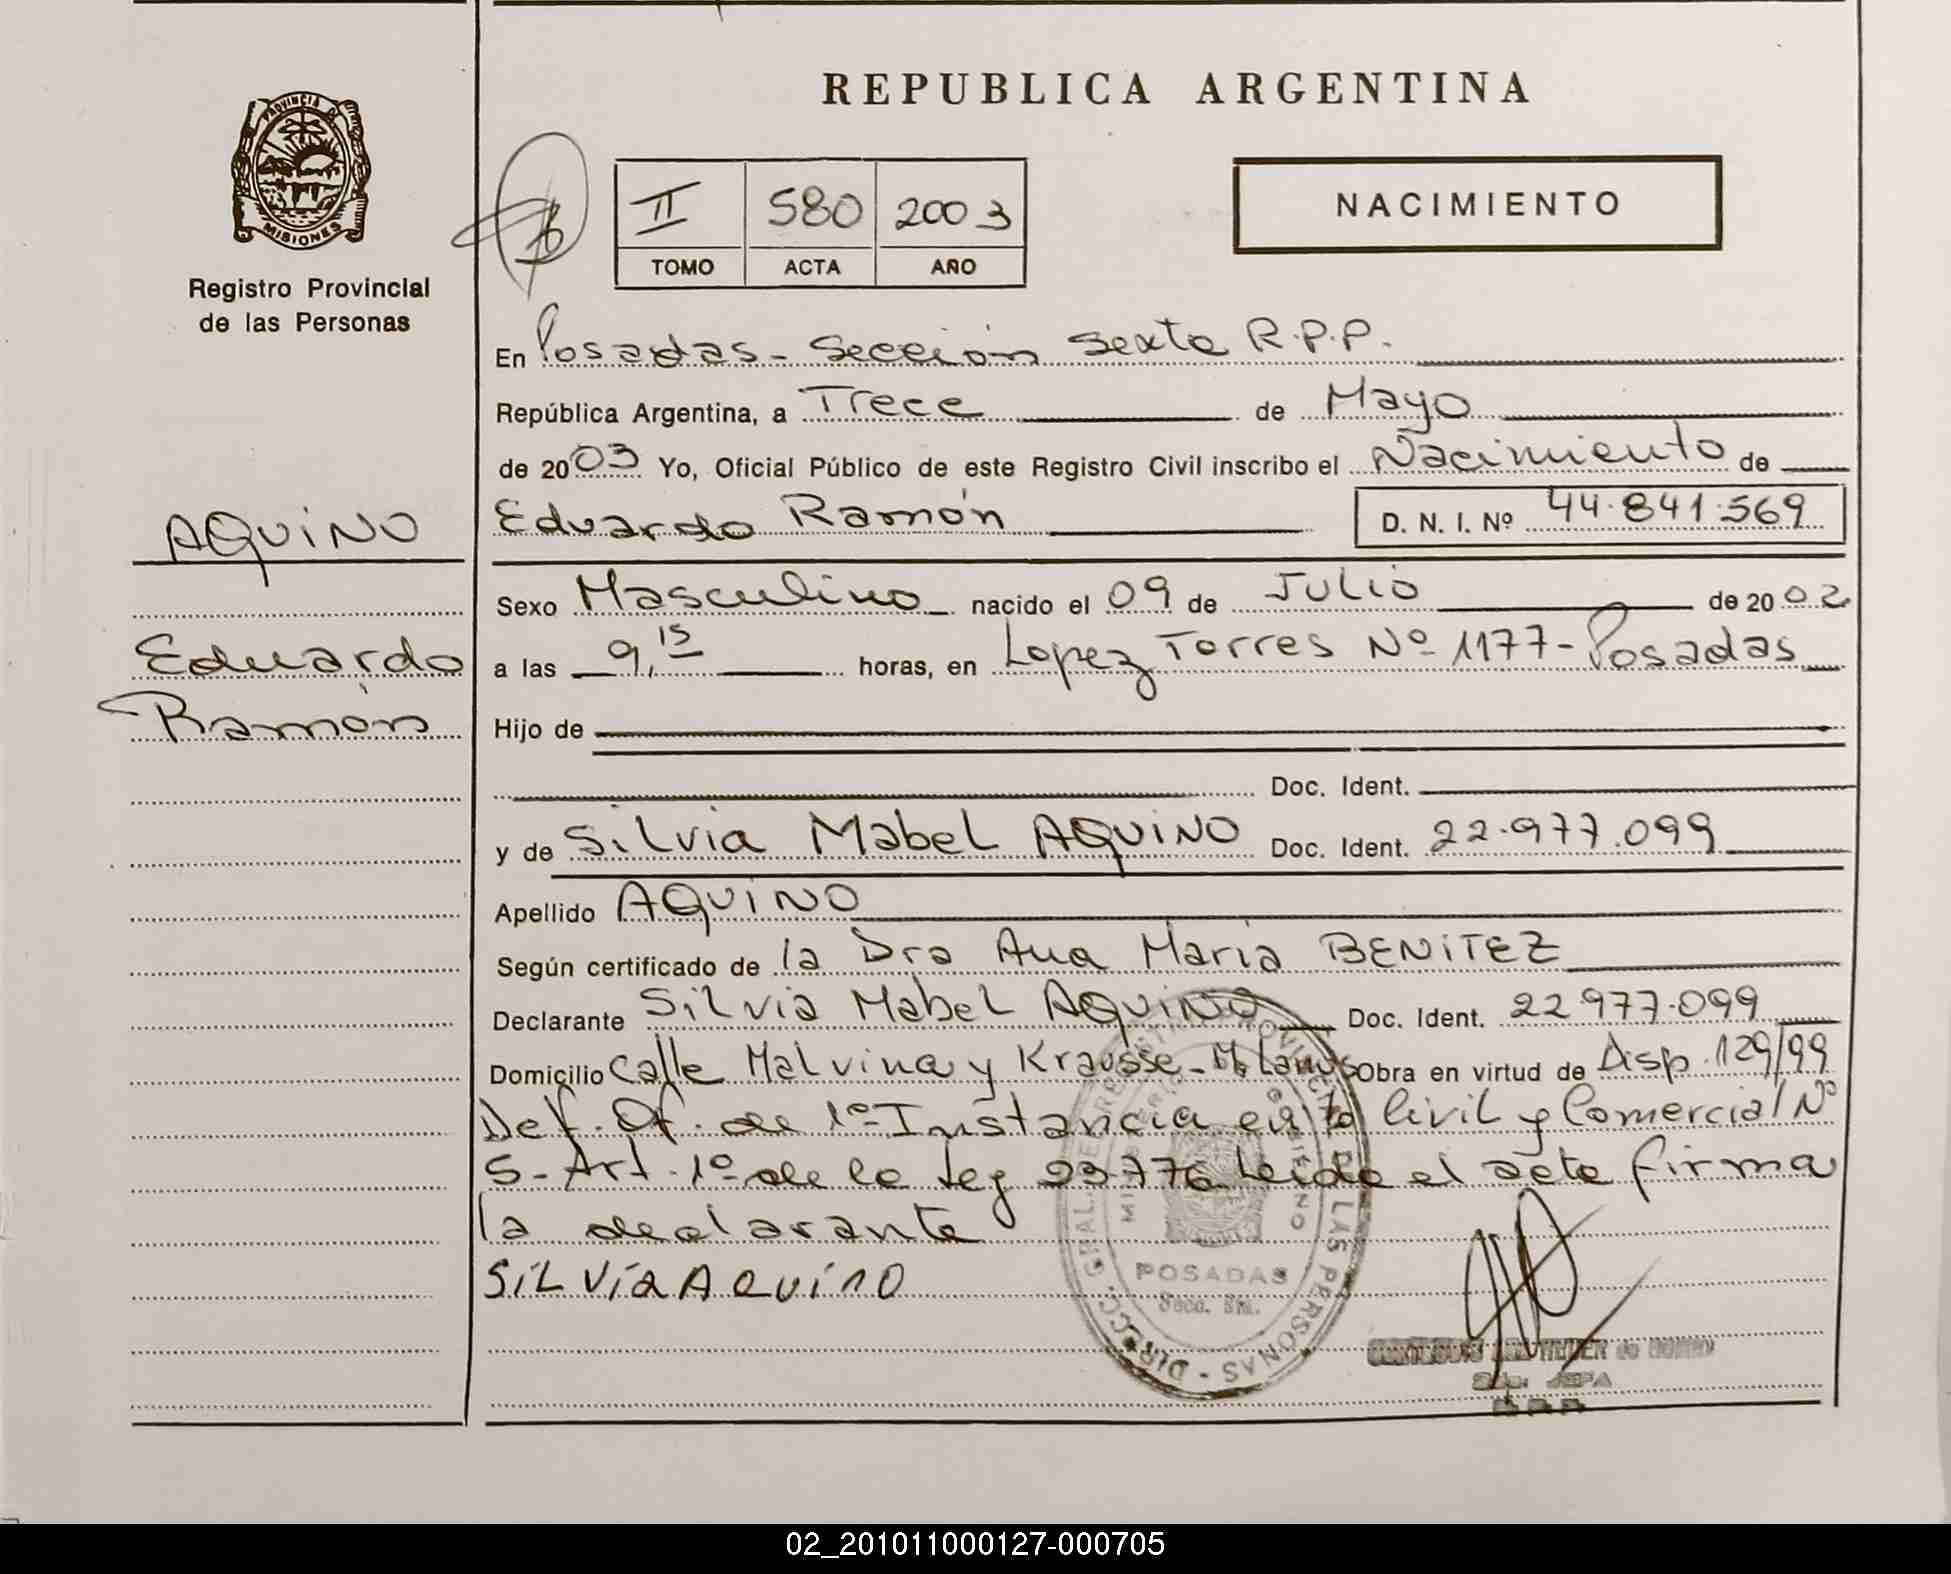 REPUBLICA ARGENTINA
PROVINCIA DE
MISIONES
Registro Provincial
de las Personas
II 580 2003
TOMO ACTA AÑO
NACIMIENTO
En Posadas - Sección Sexta R.P.P.
República Argentina, a Trece de Mayo
de 2003 Yo, Oficial Público de este Registro Civil inscribo el Nacimiento de
Eduardo Ramón D. N. I. Nº 44.841.569
AQUINO
Eduardo
Ramón
Sexo Masculino nacido el 09 de Julio de 2002
a las 9,15 horas, en Lopez Torres Nº 1177 - Posadas
Hijo de
Doc. Ident.
y de Silvia Mabel AQUINO Doc. Ident. 22.977.099
Apellido AQUINO
Según certificado de la Dra Ana Maria BENITEZ
Declarante Silvia Mabel AQUINO Doc. Ident. 22977.099
Domicilio Calle Malvina y Krausse - M. Lanus Obra en virtud de Disp. 129/99
Def. Of. de 1º Instancia en lo Civil y Comercial Nº
5 - Art. 1º de la Ley 23776 Leida el acta firma
la declarante
SILVIA AQUINO
DIRECC. GRAL. DE REGISTRO PROVINCIAL DE LAS PERSONAS
MINISTERIO DE GOBIERNO
POSADAS
Secc. 6ta.
JEFA
R.P.P.
02_201011000127-000705